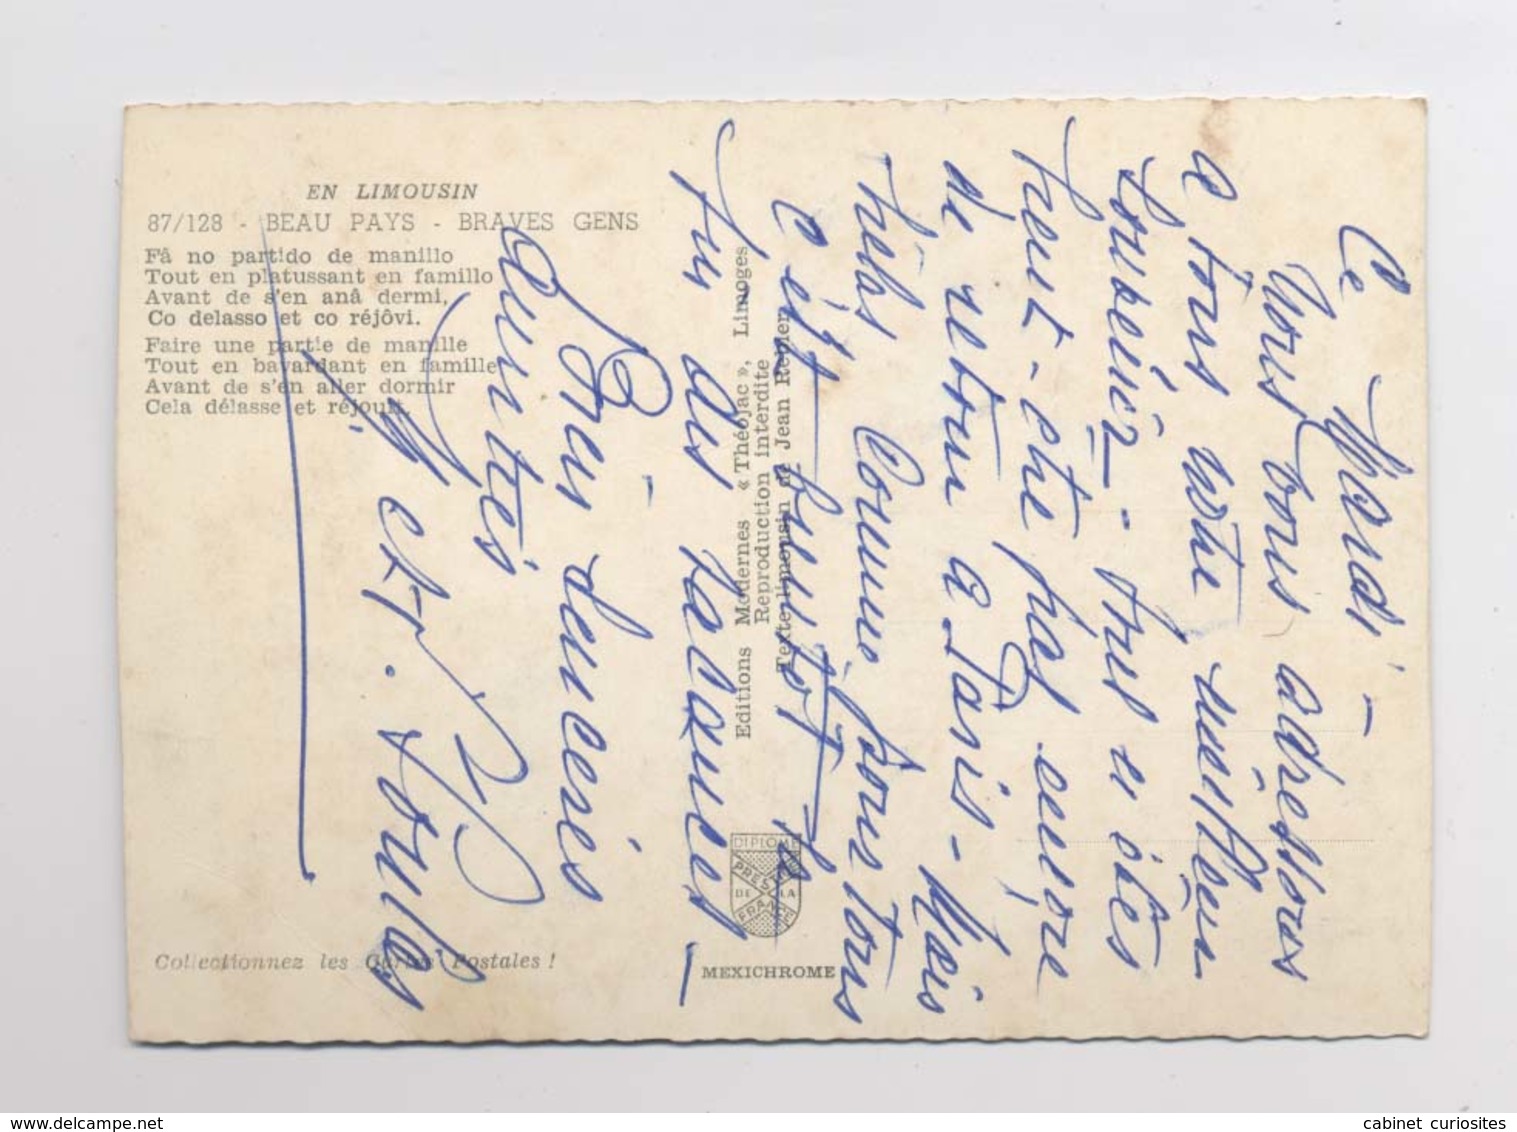 EN LIMOUSIN
87/128 - BEAU PAYS - BRAVES GENS
Fâ no partido de manillo
Tout en platussant en famillo
Avant de s'en anâ dermi,
Co delasso et co réjôvi.
Faire une partie de manille
Tout en bavardant en famille
Avant de s'en aller dormir
Cela délasse et réjouit.
Collectionnez les Cartes Postales !
Editions Modernes « Théojac », Limoges
Reproduction interdite
Texte limousin de Jean Rebier
DIPLOME
PRESTIGE
DE LA
FRANCE
MEXICHROME
Ce Mardi -
Nous vous adressons
à tous notre meilleur
Souvenir - vous n'êtes
peut-être pas encore
de retour à Paris - Mais
hélas comme pour tous
c'est bientôt la
fin des vacances -
Bien sincères
amitiés
cabinet curiosites